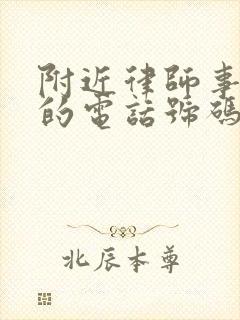 附近律師事
的電話號碼
北辰本尊